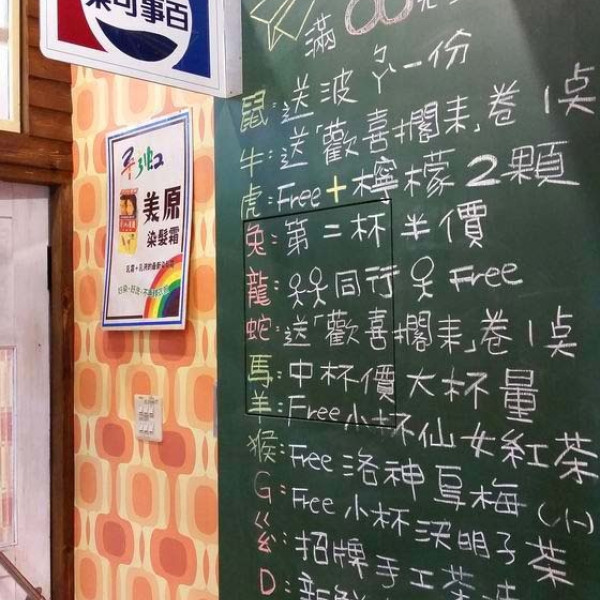 百事可樂
美原
染髮霜
滿
鼠:送波ㄋㄟ一份
牛:送「歡喜擱來」卷1点
虎:Free+檸檬2顆
兔:第二杯半價
龍:同行 Free
蛇:送「歡喜擱来」卷1点
馬:中杯價大杯量
羊:Free小杯仙女紅茶
猴:Free洛神烏梅(小)
G:Free小杯決明子茶
:招牌手工茶凍
D:新鮮